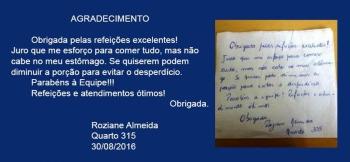 AGRADECIMENTO
Obrigada pelas refeições excelentes!
Juro que me esforço para comer tudo, mas não
cabe no meu estômago. Se quiserem podem
diminuir a porção para evitar o desperdício.
Parabéns à Equipe!!!
Refeições e atendimentos ótimos!
Obrigada.
Roziane Almeida
Quarto 315
30/08/2016
Obrigada pelas refeições excelentes!
Juro que me esforço para comer
tudo, mas não cabe no meu
Parabéns a equipe!
Obrigada
Roziane Almeida
Quarto 315